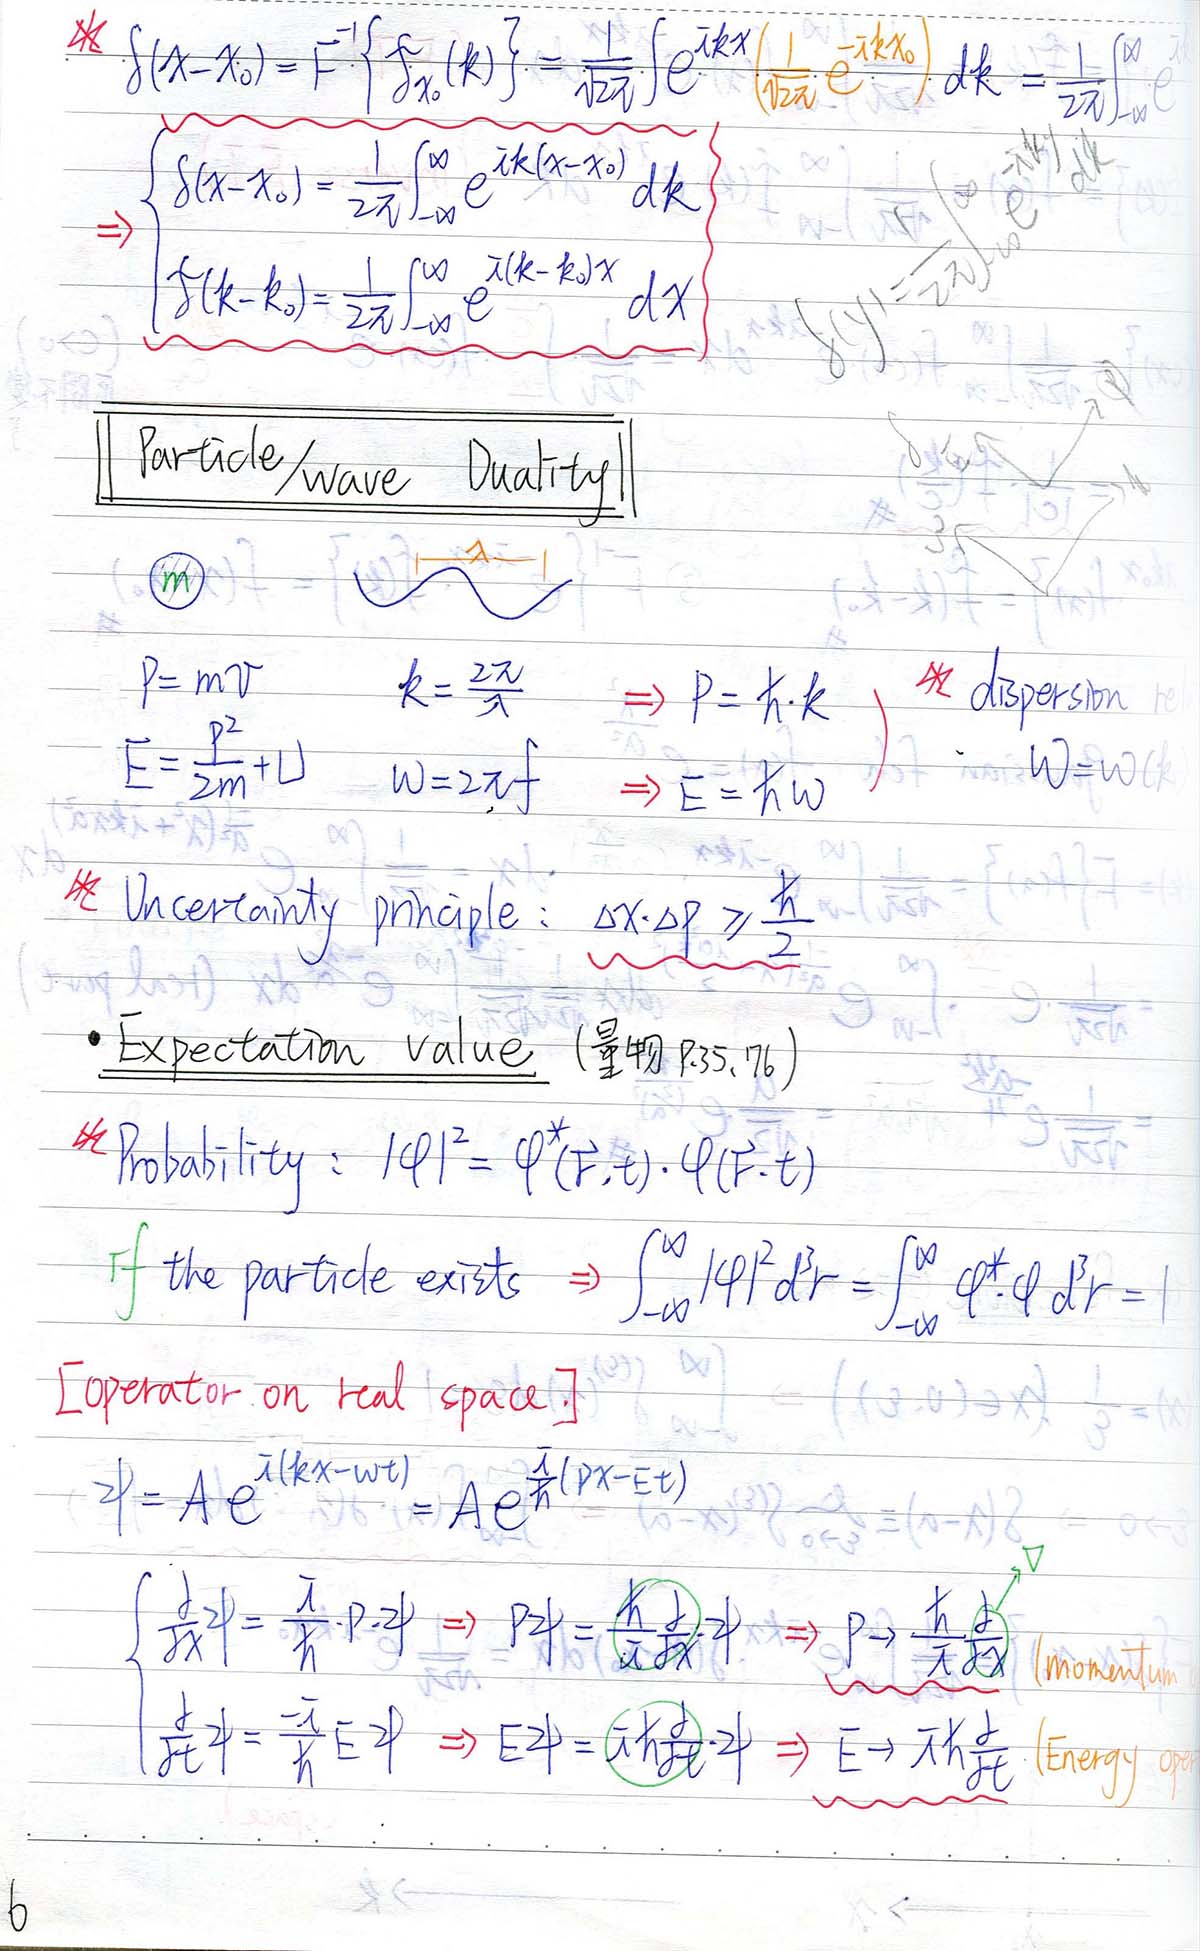 ※ δ(x-x₀) = F⁻¹{f_x₀(k)} = 1/√2π ∫e^{ikx}(1/√2π e^{-ikx₀}) dk = 1/2π ∫_{-∞}^{∞} e
⇒ { δ(x-x₀) = 1/2π ∫_{-∞}^{∞} e^{ik(x-x₀)} dk
δ(k-k₀) = 1/2π ∫_{-∞}^{∞} e^{i(k-k₀)x} dx
δ(y) = 1/2π ∫_{-∞}^{∞} e^{iky} dk
Particle/wave Duality
m λ
P = mv k = 2π/λ ⇒ P = ℏ·k ※ dispersion
E = P²/2m + U ω = 2πf ⇒ E = ℏω ω = ω(k)
※ Uncertainty principle : Δx·Δp ≥ ℏ/2
• Expectation value (量物 P.35、76)
※ Probability : |φ|² = φ*(r⃗,t)·φ(r⃗·t)
If the particle exists ⇒ ∫_{-∞}^{∞} |φ|² d³r = ∫_{-∞}^{∞} φ*·φ d³r = 1
[operator on real space.]
ψ = A e^{i(kx-ωt)} = A e^{i/ℏ(Px-Et)}
∇
{ ∂/∂x ψ = i/ℏ·P·ψ ⇒ Pψ = ℏ/i ∂/∂x·ψ ⇒ P → ℏ/i ∂/∂x (momentum
∂/∂t ψ = -i/ℏ Eψ ⇒ Eψ = iℏ ∂/∂t·ψ ⇒ E → iℏ ∂/∂t (Energy oper
6